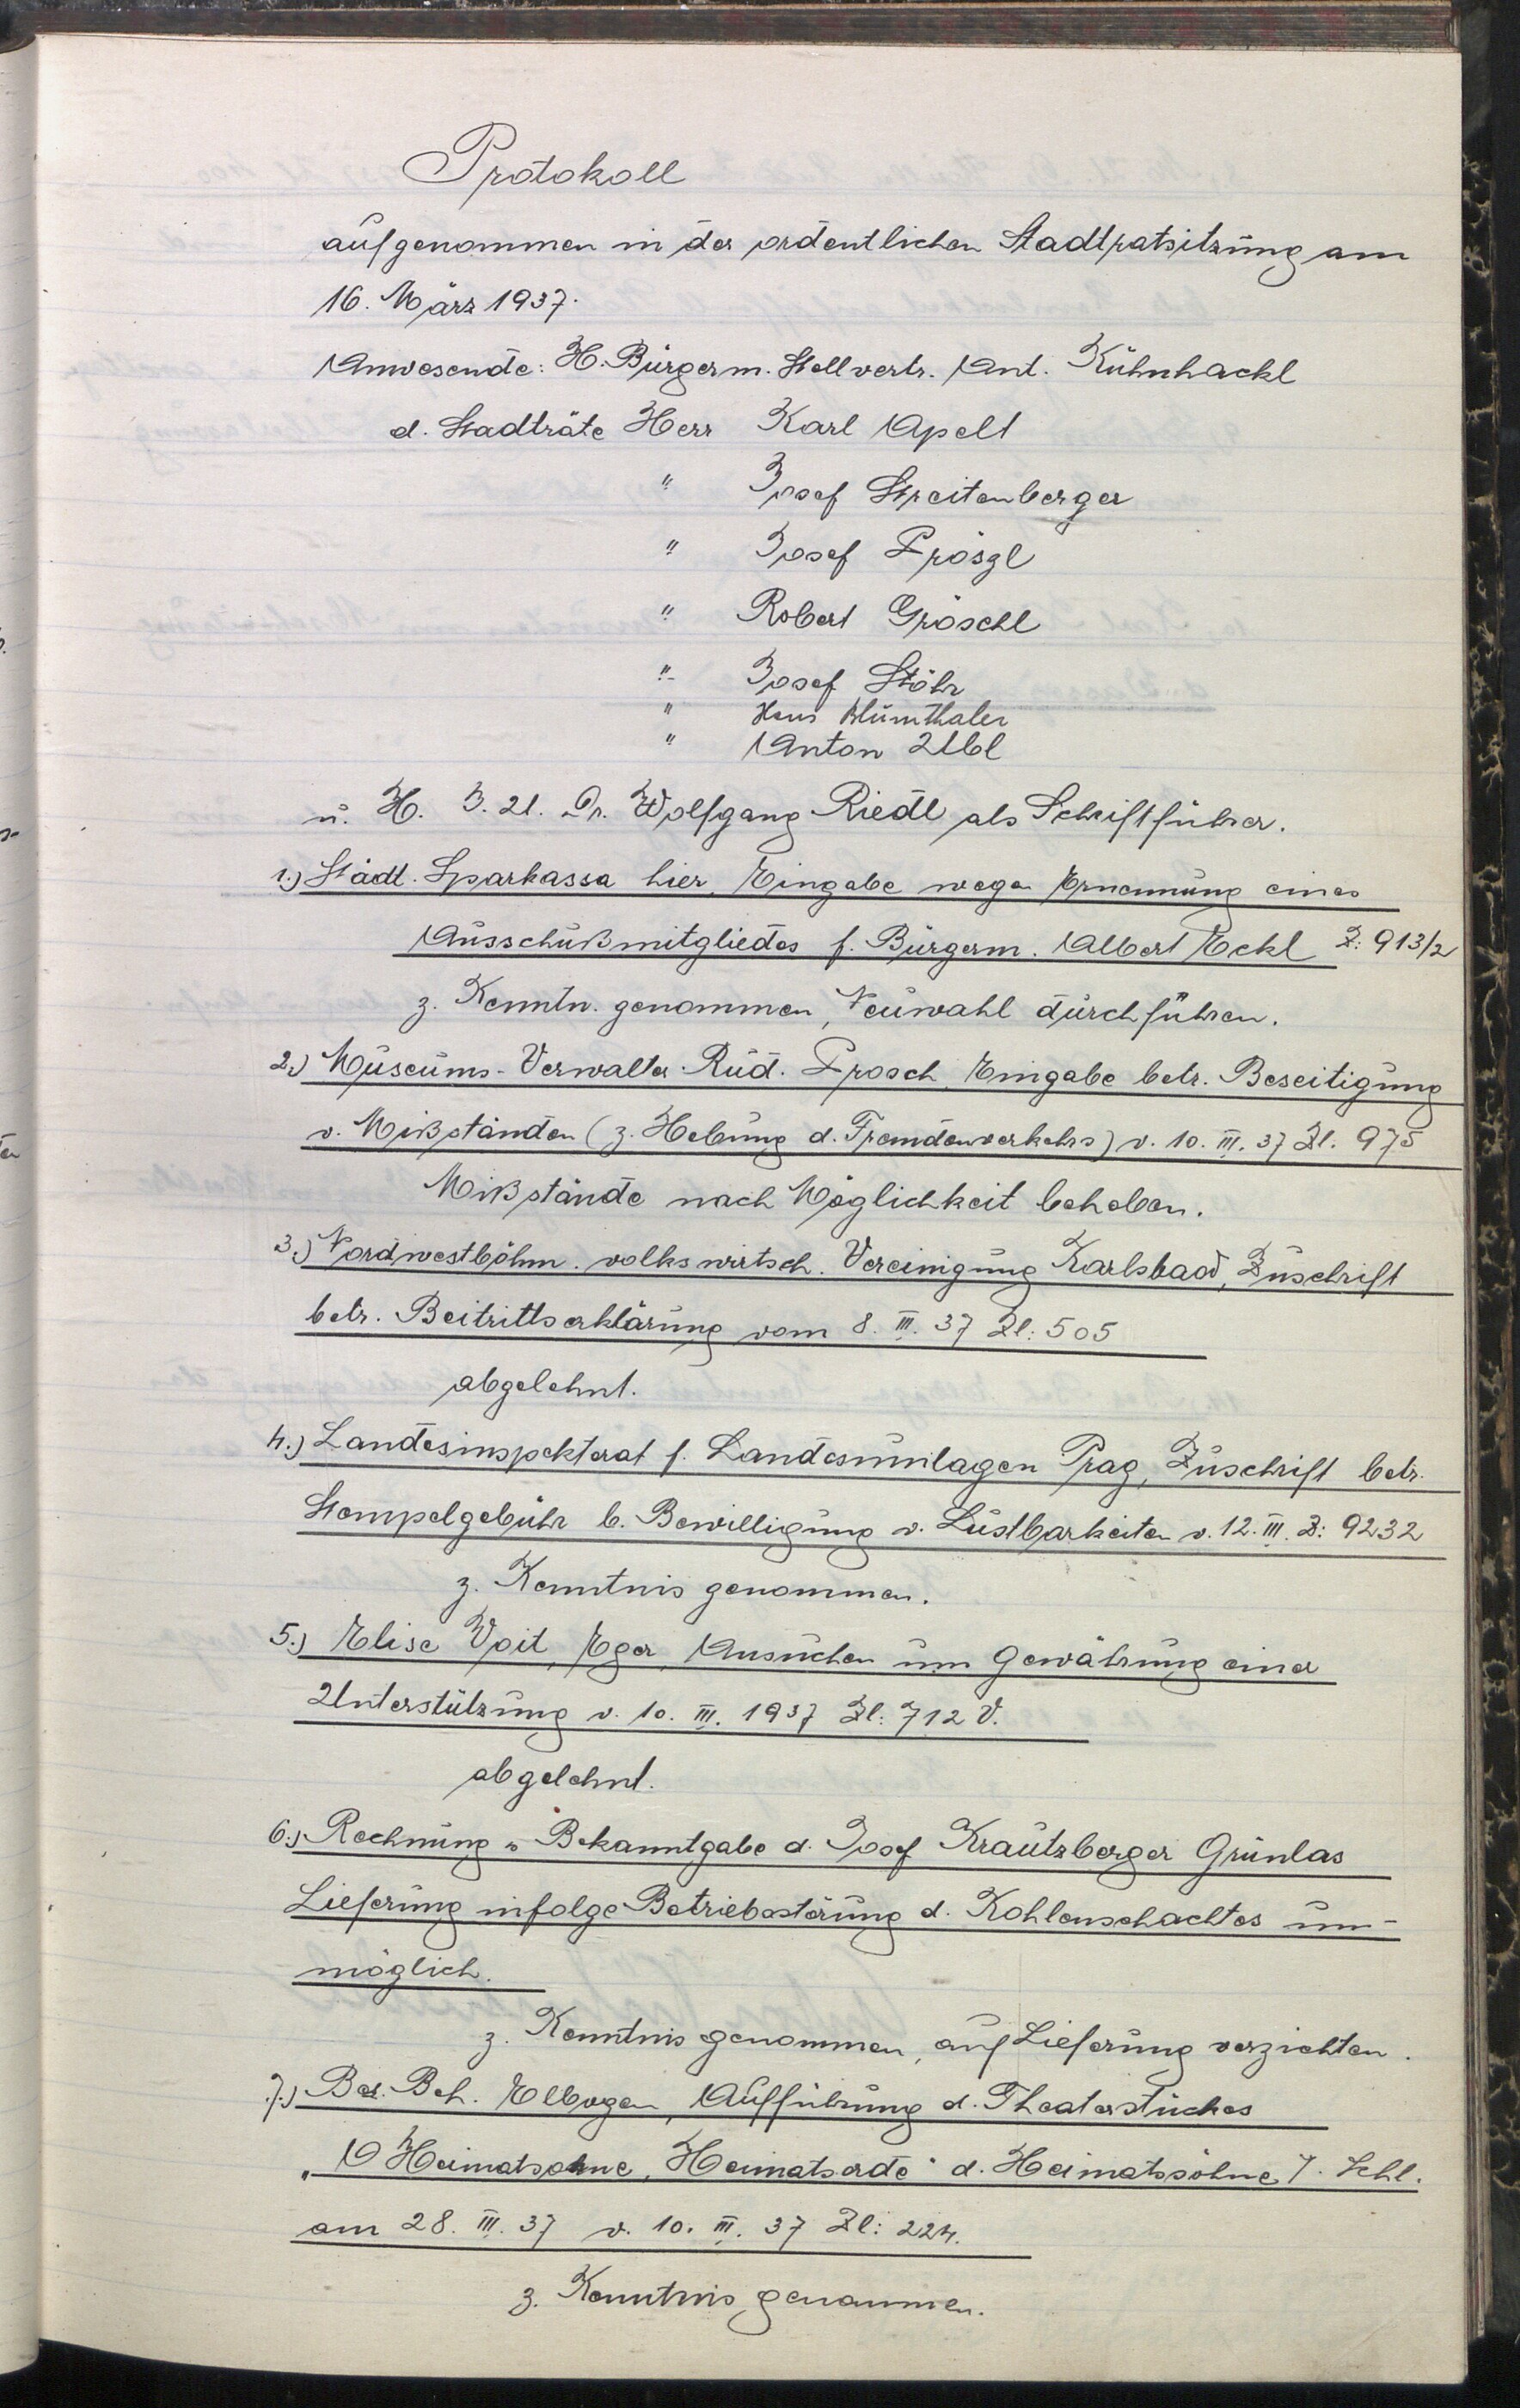 Protokoll
aufgenommen in der ordentlichen Stadtratsitzung am
16. März 1937.
Anwesende: H. Bürgerm. Stellvertr. Ant. Kühnhackl
d. Stadträte Herr Karl Apelt
" Josef Streitenberger
" Josef Frösgl
" Robert Gröschl
" Josef Stöhr
" Hans Blumthaler
" Anton Ulbl
u. H. J. U. Dr. Wolfgang Riedl als Schriftführer.
1.) Städt. Sparkassa hier, Eingabe wegen Ernennung eines
Ausschußmitgliedes f. Bürgerm. Albert Eckl Z: 913/2
z. Kenntn. genommen, Neuwahl durchführen.
2.) Museums-Verwalter Rud. Frosch, Eingabe betr. Beseitigung
v. Mißständen (z. Hebung d. Fremdenverkehrs) v. 10. III. 37 Zl. 975
Mißstände nach Möglichkeit beheben.
3.) Nordwestböhm. volkswirtsch. Vereinigung Karlsbad, Zuschrift
betr. Beitrittserklärung vom 8. III. 37 Zl: 505
abgelehnt.
4.) Landesinspektorat f. Landesumlagen Prag, Zuschrift betr.
Stempelgebühr b. Bewilligung v. Lustbarkeiten v. 12. III. Z: 9232
z. Kenntnis genommen.
5.) Elise Voit, Eger, Ansuchen um Gewährung einer
Unterstützung v. 10. III. 1937 Zl: 712 V.
abgelehnt.
6.) Rechnung u. Bekanntgabe d. Josef Krautzberger Grünlas
Lieferung infolge Betriebsstörung d. Kohlenschachtes un-
möglich.
z. Kenntnis genommen, auf Lieferung verzichten.
7.) Bez. Beh. Elbogen, Aufführung d. Theaterstückes
"O Heimatsohne, Heimatserde" d. Heimatsöhne Schl.
am 28. III. 37 v. 10. III. 37 Zl: 224.
z. Kenntnis genommen.